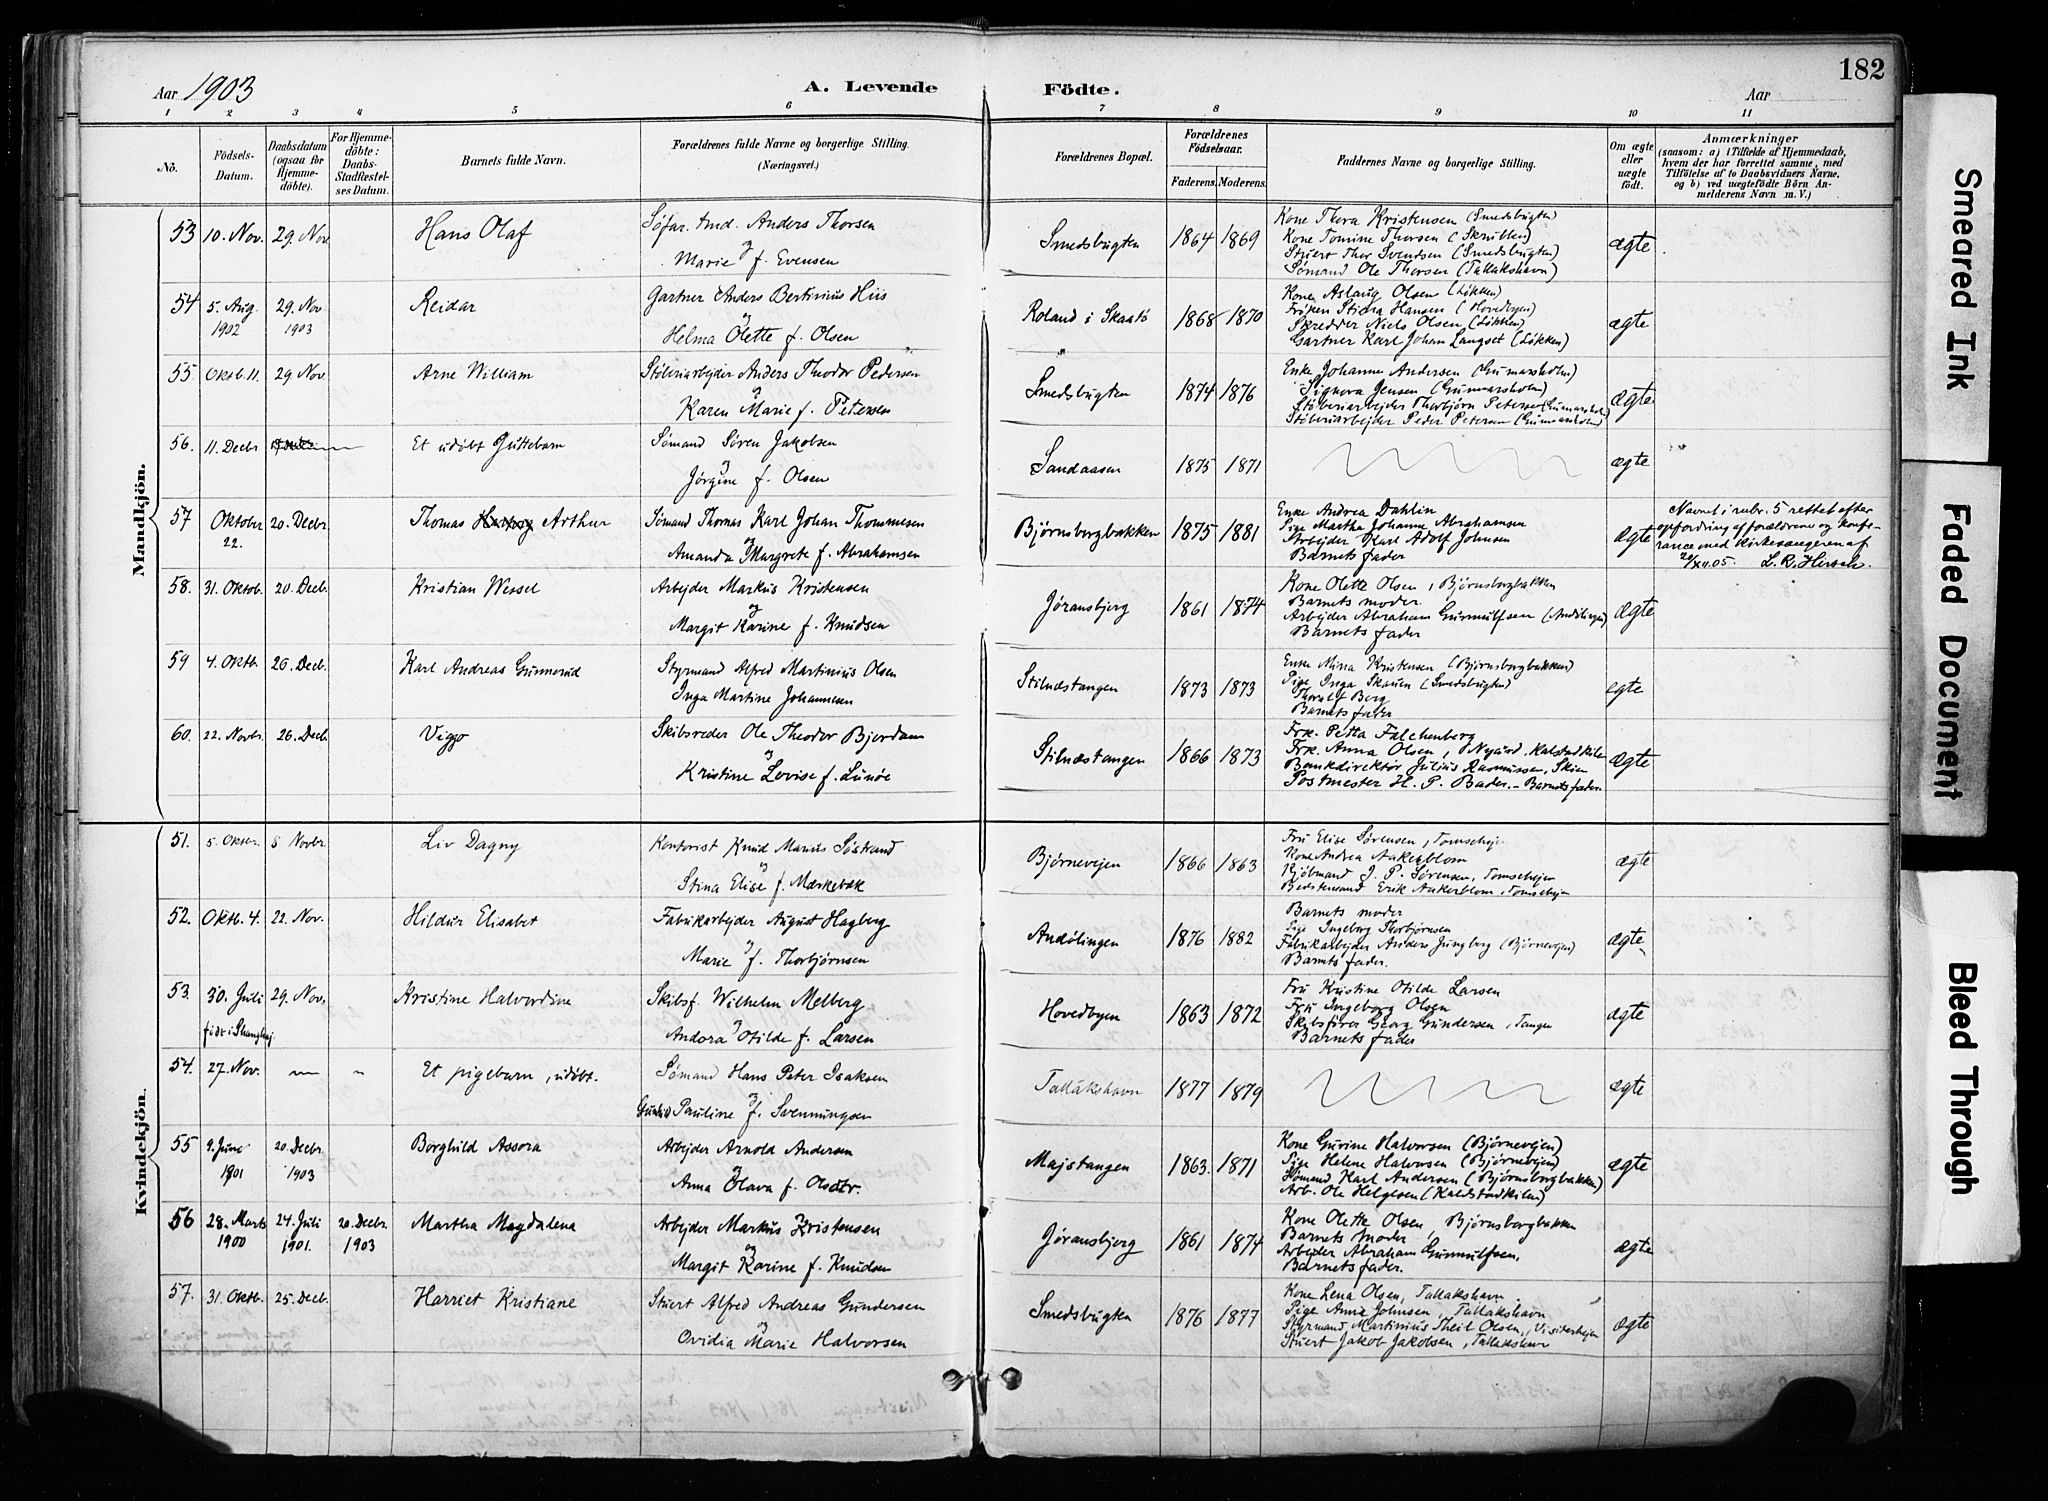 182
Aar 1903
A. Levende Födte.
Aar
1 2 3 4 5 6 7 8 9 10 11
No.
Födsels-Datum.
Daabsdatum (ogsaa for Hjemmedöbte).
For Hjemmedöbte: Daabs-Stadfestelses Datum.
Barnets fulde Navn.
Forældrenes fulde Navne og borgerlige Stilling. (Næringsvei.)
Forældrenes Bopæl.
Forældrenes Födselsaar.
Faderens. Moderens.
Faddernes Navne og borgerlige Stilling.
Om ægte eller uægte födt.
Anmærkninger
(saasom: a) i Tilfælde af Hjemmedaab,
hvem der har forrettet samme, med
Tilföielse af to Daabsvidners Navne,
og b) ved uægtefödte Börn An-
melderens Navn m. V.)
Mandkjön.
53 10. Nov. 29. Nov. Hans Olaf
Anders Thorsen
Marie f. Evensen
Smedsbugten 1864 1869
Kone Thora Kristensen (Smedsbugten)
Kone Tomine Thorsen (Skrubben)
Stuert Thor Svendsen (Smedsbugten)
Sømand Ole Thorsen (Tallakshavn)
ægte
54 5. Aug. 1902 29. Nov 1903 Reidar
Gartner Anders Bertinius Hiis
og
Helma Olette f. Olsen
Roland i Skaatö 1868 1870
Kone Aslaug Olsen (Løkken)
Frøken Hansen (Hovedbyen)
Skredder Niels Olsen (Løkken)
Gartner Karl Johan Langset (Løkken)
ægte
55 Oktb. 11. 29. Nov. Arne William
Støberiarbejder Anders Theodor Pedersen
og
Karen Marie f. Petersen
Smedsbugten 1874 1876
Enke Johanne Andersen (Gumarsholm)
Signora Jensen (Gumarsholm)
Støberiarbejder Thorbjørn Petersen (Gumarsholm)
Støberiarbejder Peder Petersen (Gumarsholm)
ægte
56. 11. Decbr Et udöbt Guttebarn
Sømand Søren Jakobsen
og
Jørgine f. Olsen
Sandaasen 1875 1871
ægte
57 Oktober 22. 20. Decbr. Thomas Arthur
Sømand Thomas Karl Johan Thommesen
og
Amanda Margrete f. Abrahamsen
Bjørnsborgbakken 1875 1881
Enke Andrea Dahlin
Pige Martha Johanne Abrahamsen
Arbejder Karl Adolf Johnsen
Barnets fader
ægte
Navnet i rubr. 5 rettet efter
opfordring af forældrene og konfe-
rance med kirkesangeren af
20/XII.05.
58. 31. Oktob. 20. Decb. Kristian Wessel
Arbejder Markus Kristensen
og
Margit Karine f. Knudsen
Jøransbjerg 1861 1874
Kone Olette Olsen, Bjørnsborgbakken
Barnets moder
Arbejder Abraham Gunnulfsen
Barnets fader
ægte
59 4. Oktb. 26. Decb. Karl Andreas Gunnerud
Styrmand Alfred Martinius Olsen
Inga Martine Johannesen
Stilnæstangen 1873 1873
Enke Mina Kristensen (Bjørnsborgbakken)
Pige Inga Skauen (Smedsbugten)
Thorulf Berg
Barnets fader
egte
60. 22. Novbr. 26. Decb Viggo
Skibsreder Ole Theodor Bjordam
og
Kristine Lovise f. Lunöe
Stilnæstangen 1866 1873
Frk. Petta Falchenberg
Frk. Anna Olsen, Nygård, Kalstadkilen
Bankdirektør Julius Rasmussen, Skien
Postmester H. P. Bader. - Barnets fader.
ægte
Kvindekjön.
51. 5. Oktbr. 8 Novbr. Liv Dagny
Kontorist Knud Marius Søstrand
og
Stina Elise f. Mærkebæk
Bjørnevejen 1866 1863
Fru Elise Sørensen, Tomsehejen
Kone Andrea Aakerblom
Kjøbmand J. P. Sørensen, Tomsehejen
Erik Aakerblom, Tomsehejen
ægte
52. Oktb. 4. 22. Nov. Hildur Elisabet
Fabrikarbejder August Hagberg
og
Marie f. Thorbjørnsen
Andölingen 1876 1882
Barnets moder
Pige Ingeborg Thorbjørnsen
Fabrikarbejder Anders Jungberg (Bjørnevejen)
Barnets fader.
ægte
53. 30. Juli 29. Nov. Kristine Halvordine
født i Shanghaj.
Skibsf. Wilhelm Melberg
og
Andora Otilde f. Larsen
Hovedbyen 1863 1872
Fru Kristine Otilde Larsen
Fru Ingeborg Olsen
Skibsfører Georg Gundersen, Tangen
Barnets fader
ægte
54. 27. Nov. Et pigebarn, udöbt.
Sømand Hans Peter Isaksen
og
Gunhild Pauline f. Svenningsen
Tallakshavn 1877 1879
ægte
55 9. Juni 1901 20. Decbr. 1903 Borghild Assora
Arbejder Arnold Andersen
og
Anna Olava f. Olsdtr.
Majstangen 1863. 1871
Kone Gurine Halvorsen (Bjørnevejen)
Pige Helene Halvorsen (Bjørnevejen)
Sømand Karl Andersen (Bjørnsborgbakken)
Arb. Ole Helgesen (Kaldstadkilen)
ægte
56 28. Marts 1900 24. Juli 1901. 20. Decbr. 1903 Martha Magdalena
Arbejder Markus Kristensen
og
Margit Karine f. Knudsen
Jøransbjerg 1861 1874
Kone Olette Olsen, Bjørnsborgbakken
Barnets moder
Arbejder Abraham Gunnulfsen,
Barnets fader.
ægte
57. 31. Oktb. 25. Decb. Harriet Kristiane
Stuert Alfred Andreas Gundersen
og
Ovidia Marie Halvorsen
Smedsbugten 1876 1877
Kone Lena Olsen, Tallakshavn
Pige Anna Johnsen, Tallakshavn
Styrmand Martinius Theil Olsen,
Stuert Jakob Jakobsen, Tallakshavn
ægte
Smeared Ink
Faded Document
Bleed Through